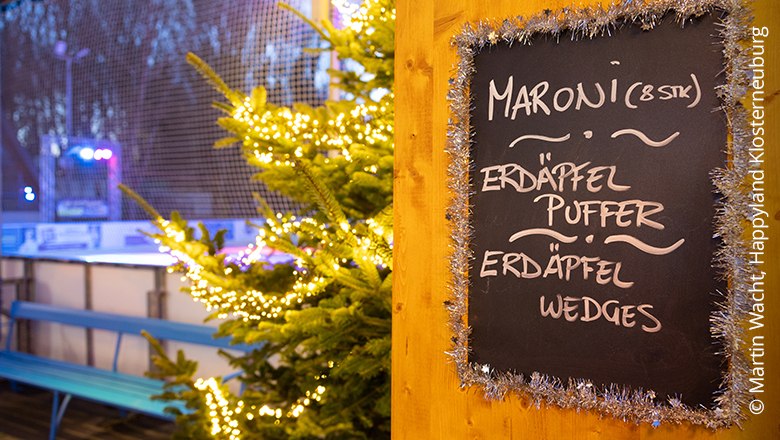 MARONI (8 STK)
~ · ~
ERDÄPFEL
PUFFER
~ · ~
ERDÄPFEL
WEDGES
© Martin Wacht, Happyland Klosterneuburg